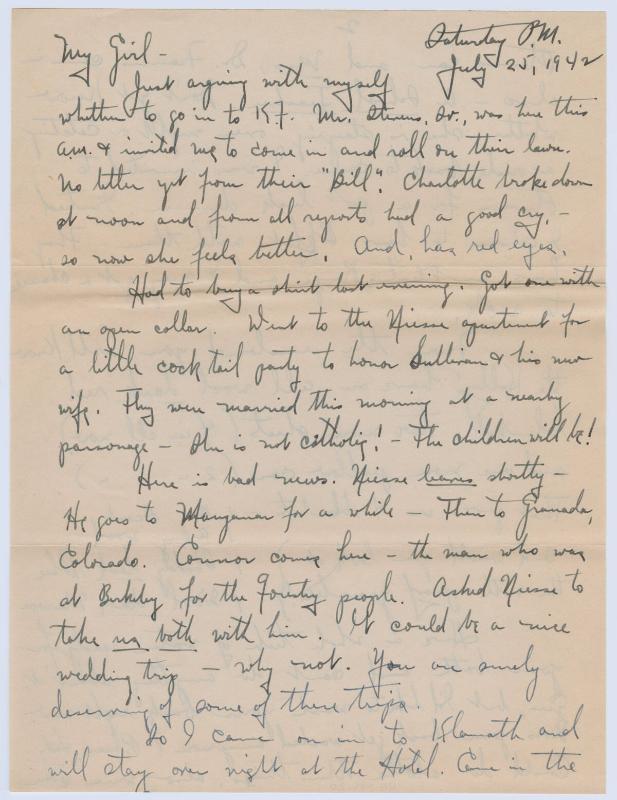 Saturday P.M.
July 25, 1942
My Girl -
Just arguing with myself
whether to go in to K7. Mr. Stevens, Sr., was here this
a.m. & invited me to come in and roll on their lawn.
No letter yet from their "Bill". Charlotte broke down
at noon and from all reports had a good cry, -
so now she feels better. And, has red eyes.
Had to buy a shirt last evening. Got one with
an open collar. Went to the Niesse apartment for
a little cock tail party to honor Sullivan & his new
wife. They were married this morning at a nearby
parsonage - She is not catholic! - The children will be!
Here is bad news. Niesse leaves shortly -
He goes to Manzanar for a while - Then to Granada,
Colorado. Connor comes here - the man who was
at Berkeley for the Forestry people. Asked Niesse to
take us both with him. It could be a nice
wedding trip - why not. You are surely
deserving of some of these trips.
So I came on in to Klamath and
will stay over night at the Hotel. Came in the